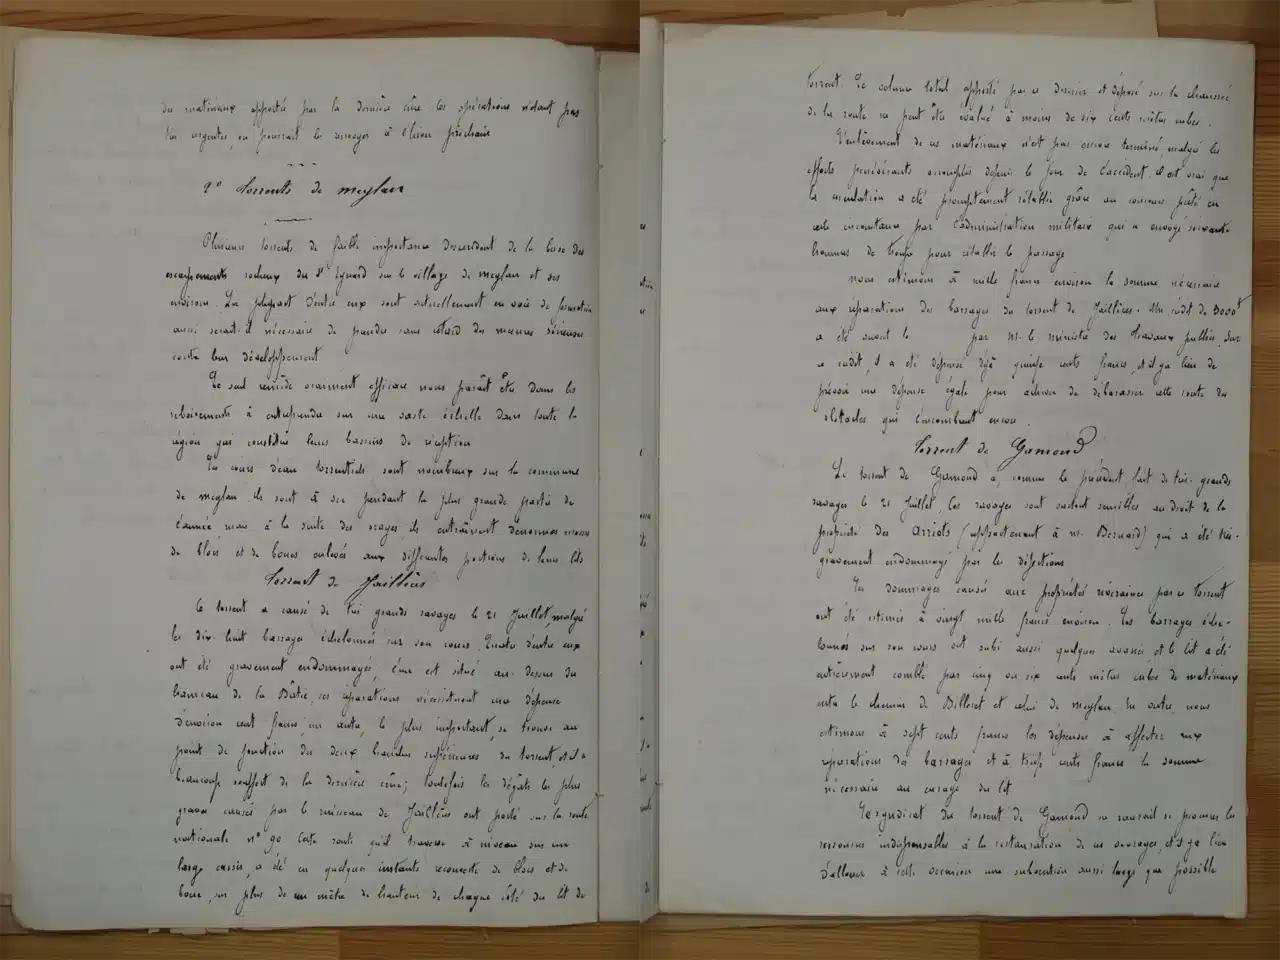 des matériaux apportés par la dernière crûe les opérations n'étant pas
très urgentes, on pourrait les renvoyer à l'hiver prochain
2° Torrents de Meylan
Plusieurs torrents de faible importance descendent de la base des
escarpements rocheux du St Eynard sur le village de Meylan et ses
environs. La plupart d'entre eux sont actuellement en voie de formation
aussi serait-il nécessaire de prendre sans retard des mesures sérieuses
contre leur développement
Le seul remède vraiment efficace nous paraît être dans les
reboisements à entreprendre sur une vaste échelle dans toute la
région qui constitue leurs bassins de réception
Les cours d'eau torrentiels sont nombreux sur la commune
de Meylan. Ils sont à sec pendant la plus grande partie de
l'année mais à la suite des orages, ils entraînent d'énormes masses
de blocs et de boues enlevés aux différentes portions de leurs lits
Torrent de Jaillères
Ce torrent a causé de très grands ravages le 21 Juillet, malgré
les dix-huit barrages échelonnés sur son cours. Quatre d'entre eux
ont été gravement endommagés, l'un est situé au-dessus du
hameau de la Bâtie, ses réparations nécessitent une dépense
d'environ cent francs; un autre, le plus important, se trouve au
point de jonction des deux branches supérieures du torrent, et il a
beaucoup souffert de la dernière crûe; toutefois les dégâts les plus
graves causés par le ruisseau de Jaillères ont porté sur la route
nationale n° 90 Cette route qu'il traverse à niveau sur un
large cassis, a été en quelques instants recouverte de blocs et de
boue, sur plus de un mètre de hauteur de chaque côté du lit du
torrent. Le volume total apporté par ce dernier et déposé sur la chaussée
de la route ne peut être évalué à moins de six cents mètres cubes.
L'enlèvement de ces matériaux n'est pas encore terminé, malgré les
efforts persévérants accomplis depuis le jour de l'accident. il est vrai que
la circulation a été promptement rétablie grâce au concours prêté en
cette circonstance par l'administration militaire qui a envoyé soixante
hommes de troupe pour rétablir le passage
Nous estimons à mille francs environ la somme nécessaire
aux réparations des barrages du torrent de Jaillères. Un crédit de 3000f
a été ouvert le par M. le ministre des Travaux publics. Sur
ce crédit, il a été dépensé déjà quinze cents francs, et il y a lieu de
prévoir une dépense égale pour achever de débarasser cette route des
obstacles qui l'encombrent encore.
Torrent de Gamond
Le torrent de Gamond a, comme le précédent, fait de très-grands
ravages le 21 Juillet, Ces ravages sont surtout sensibles au droit de la
propriété des Arriots (appartenant à M. Bernard) qui a été très-
gravement endommagée par les déjections
Les dommages causés aux propriétés riveraines par ce torrent
ont été estimés à vingt mille francs environ. Les barrages éche-
lonnés sur son cours ont subi aussi quelques avaries, et le lit a été
entièrement comblé par cinq ou six cents mètres cubes de matériaux
entre le chemin de Billeret et celui de Meylan. En outre, nous
estimons à sept cents francs les dépenses à affecter aux
réparations des barrages et à trois cents francs la somme
nécessaire au curage du lit
Le syndicat du torrent de Gamond ne saurait se procurer les
ressources indispensables à la restauration de ces ouvrages, et il y a lieu
d'allouer à cette occasion une subvention aussi large que possible